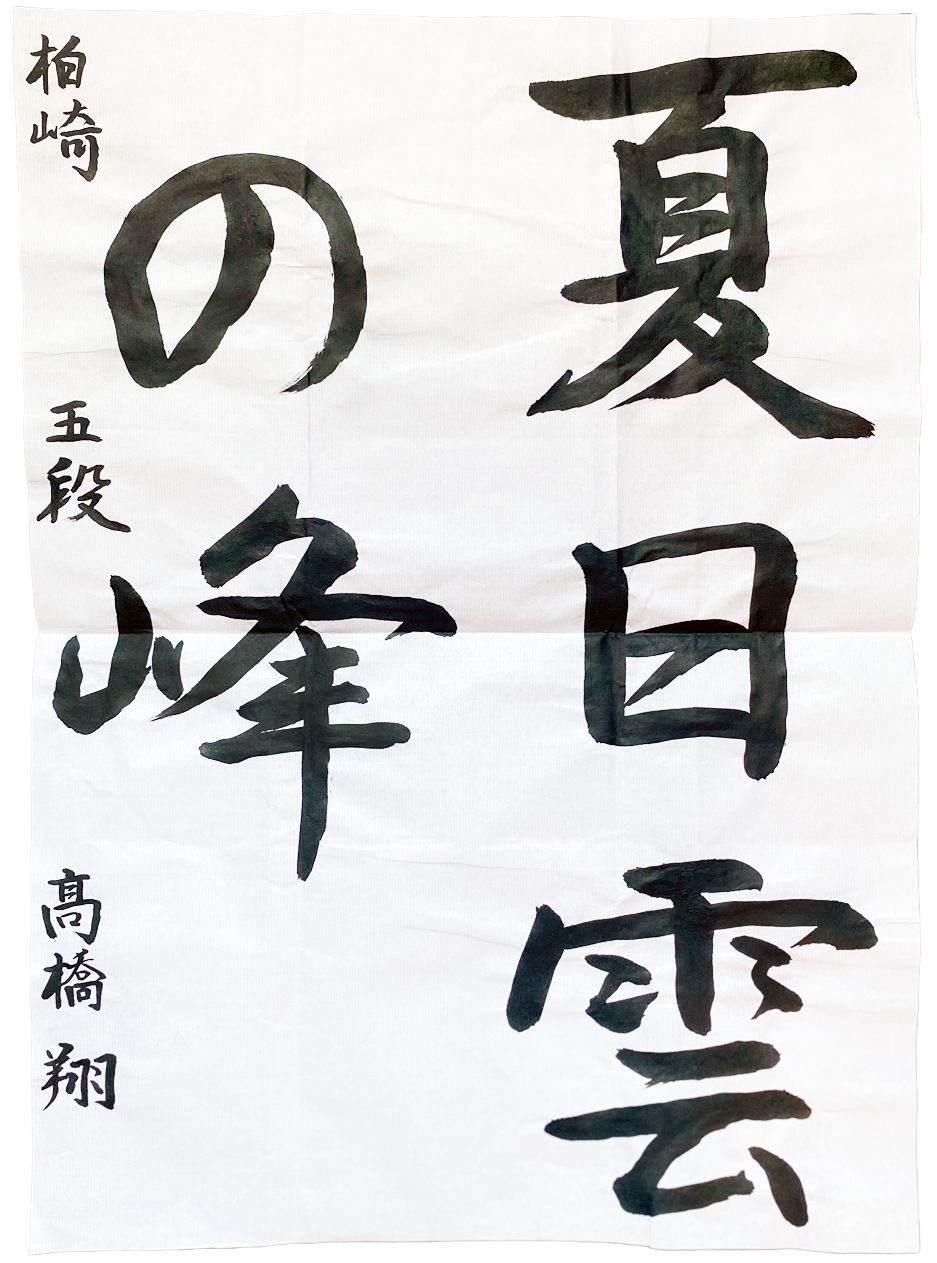 夏日雲
の峰
柏崎 五段 髙橋 翔